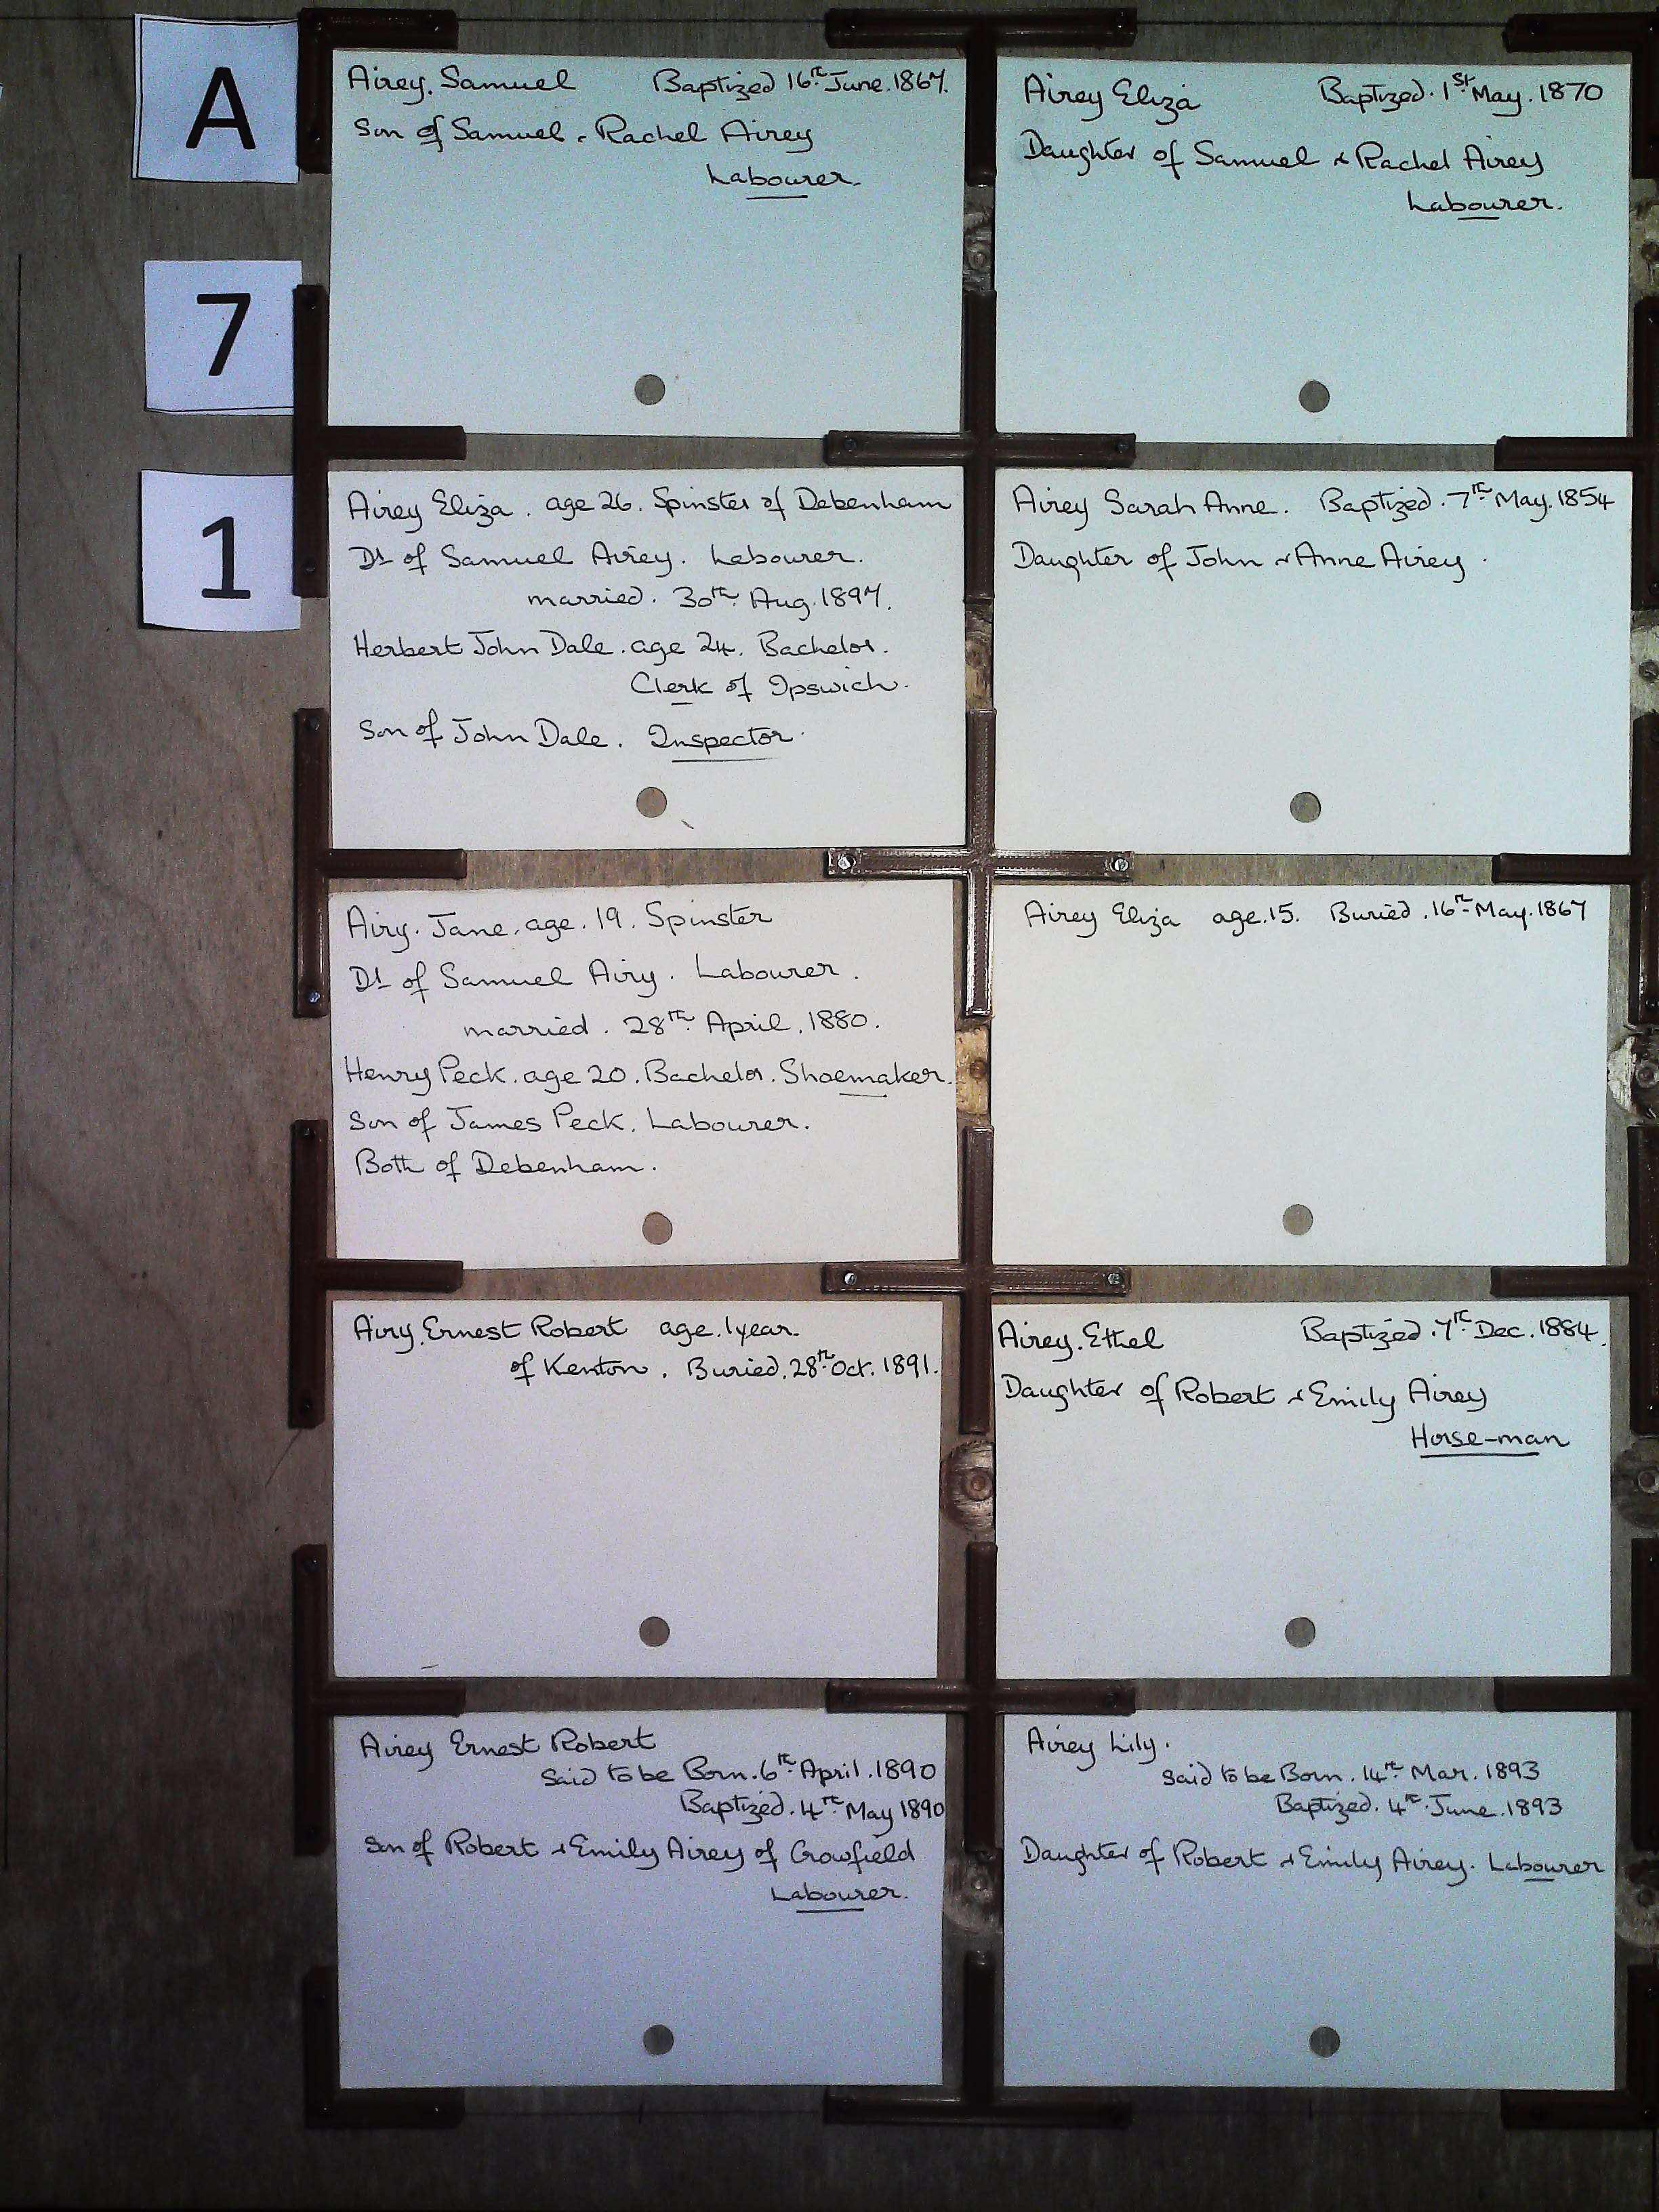 A
7
1
Airey. Samuel Baptized 16th June. 1867.
Son of Samuel & Rachel Airey
Labourer.
Airey Eliza Baptized. 1st May. 1870
Daughter of Samuel & Rachel Airey
Labourer.
Airey Eliza. age 26. Spinster of Debenham
Dt of Samuel Airey. Labourer.
married. 30th Aug. 1897.
Herbert John Dale. age 24. Bachelor.
Clerk of Ipswich.
Son of John Dale. Inspector.
Airey Sarah Anne. Baptized. 7th May. 1854
Daughter of John & Anne Airey.
Airy. Jane. age. 19. Spinster
Dt of Samuel Airy. Labourer.
married. 28th April. 1880.
Henry Peck. age 20. Bachelor. Shoemaker.
Son of James Peck. Labourer.
Both of Debenham.
Airey Eliza age. 15. Buried. 16th May. 1867
Airy. Ernest Robert age. 1 year.
of Kenton. Buried. 28th Oct. 1891.
Airey. Ethel Baptized. 7th Dec. 1884.
Daughter of Robert & Emily Airey
Horse-man
Airey Ernest Robert
Said to be Born. 6th April. 1890
Baptized. 4th May 1890
Son of Robert & Emily Airey of Crowfield
Labourer.
Airey Lily.
Said to be Born. 14th Mar. 1893
Baptized. 4th June. 1893
Daughter of Robert & Emily Airey. Labourer